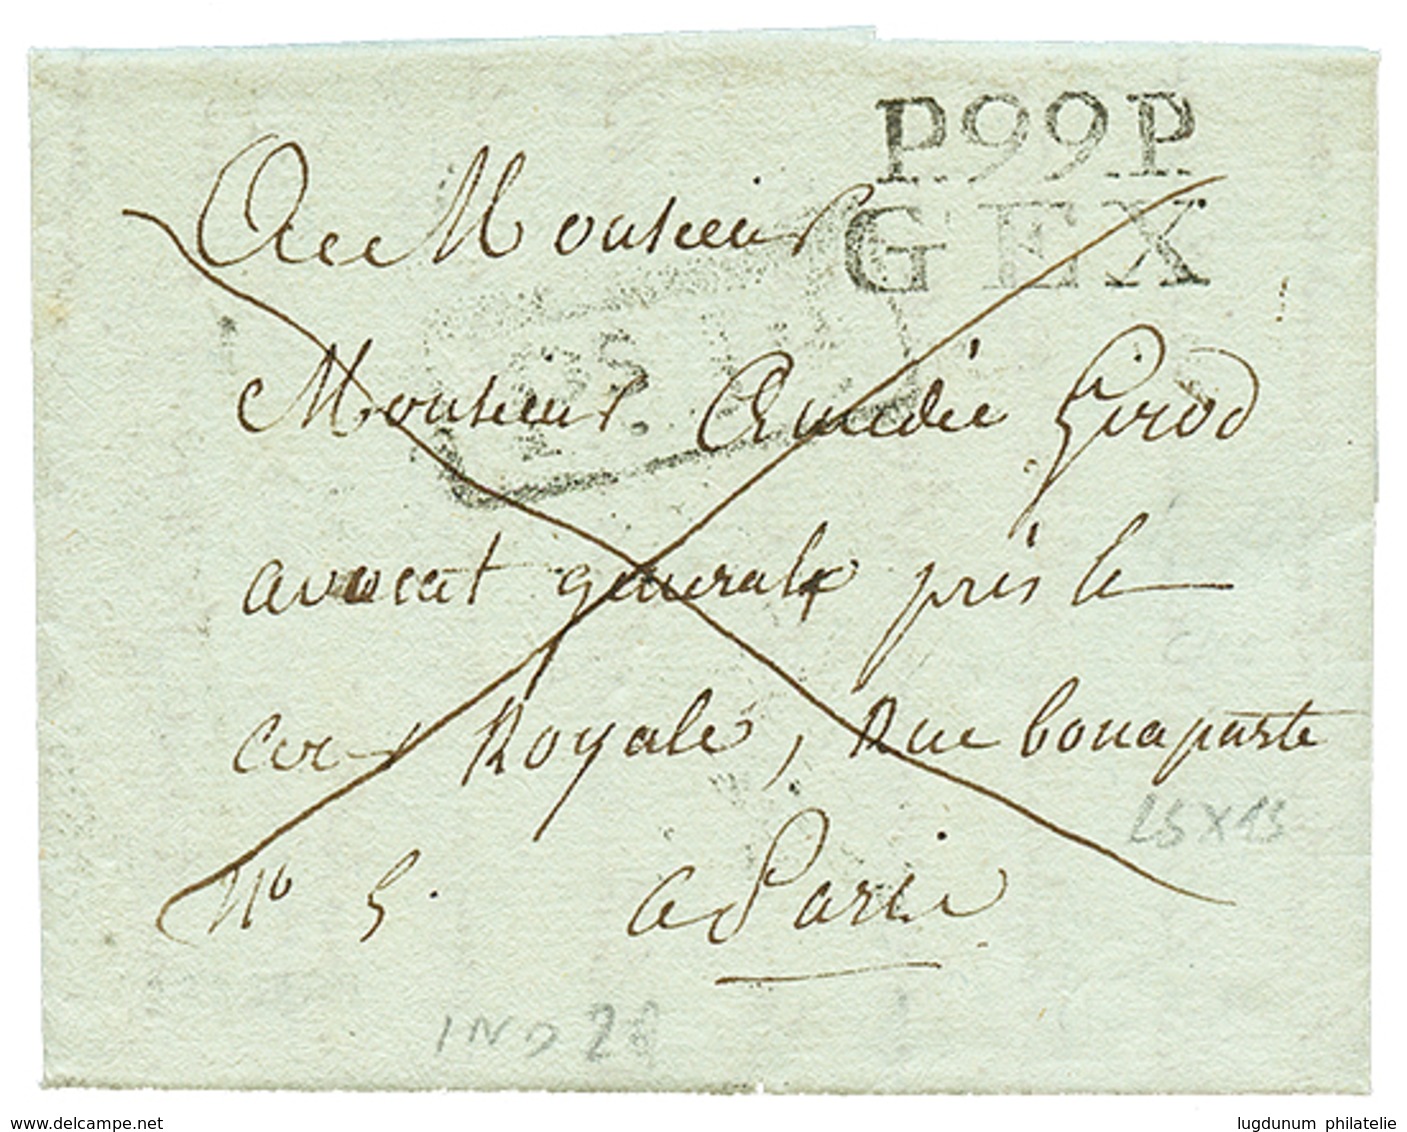 P.99.P.
GEX
A Monsieur
Monsieur Amedée Girod
avocat général près la
cour Royale, Rue bonaparte
N° 5. a Paris
25 X 13
IND 28
www.delcampe.net
lugdunum philatelie